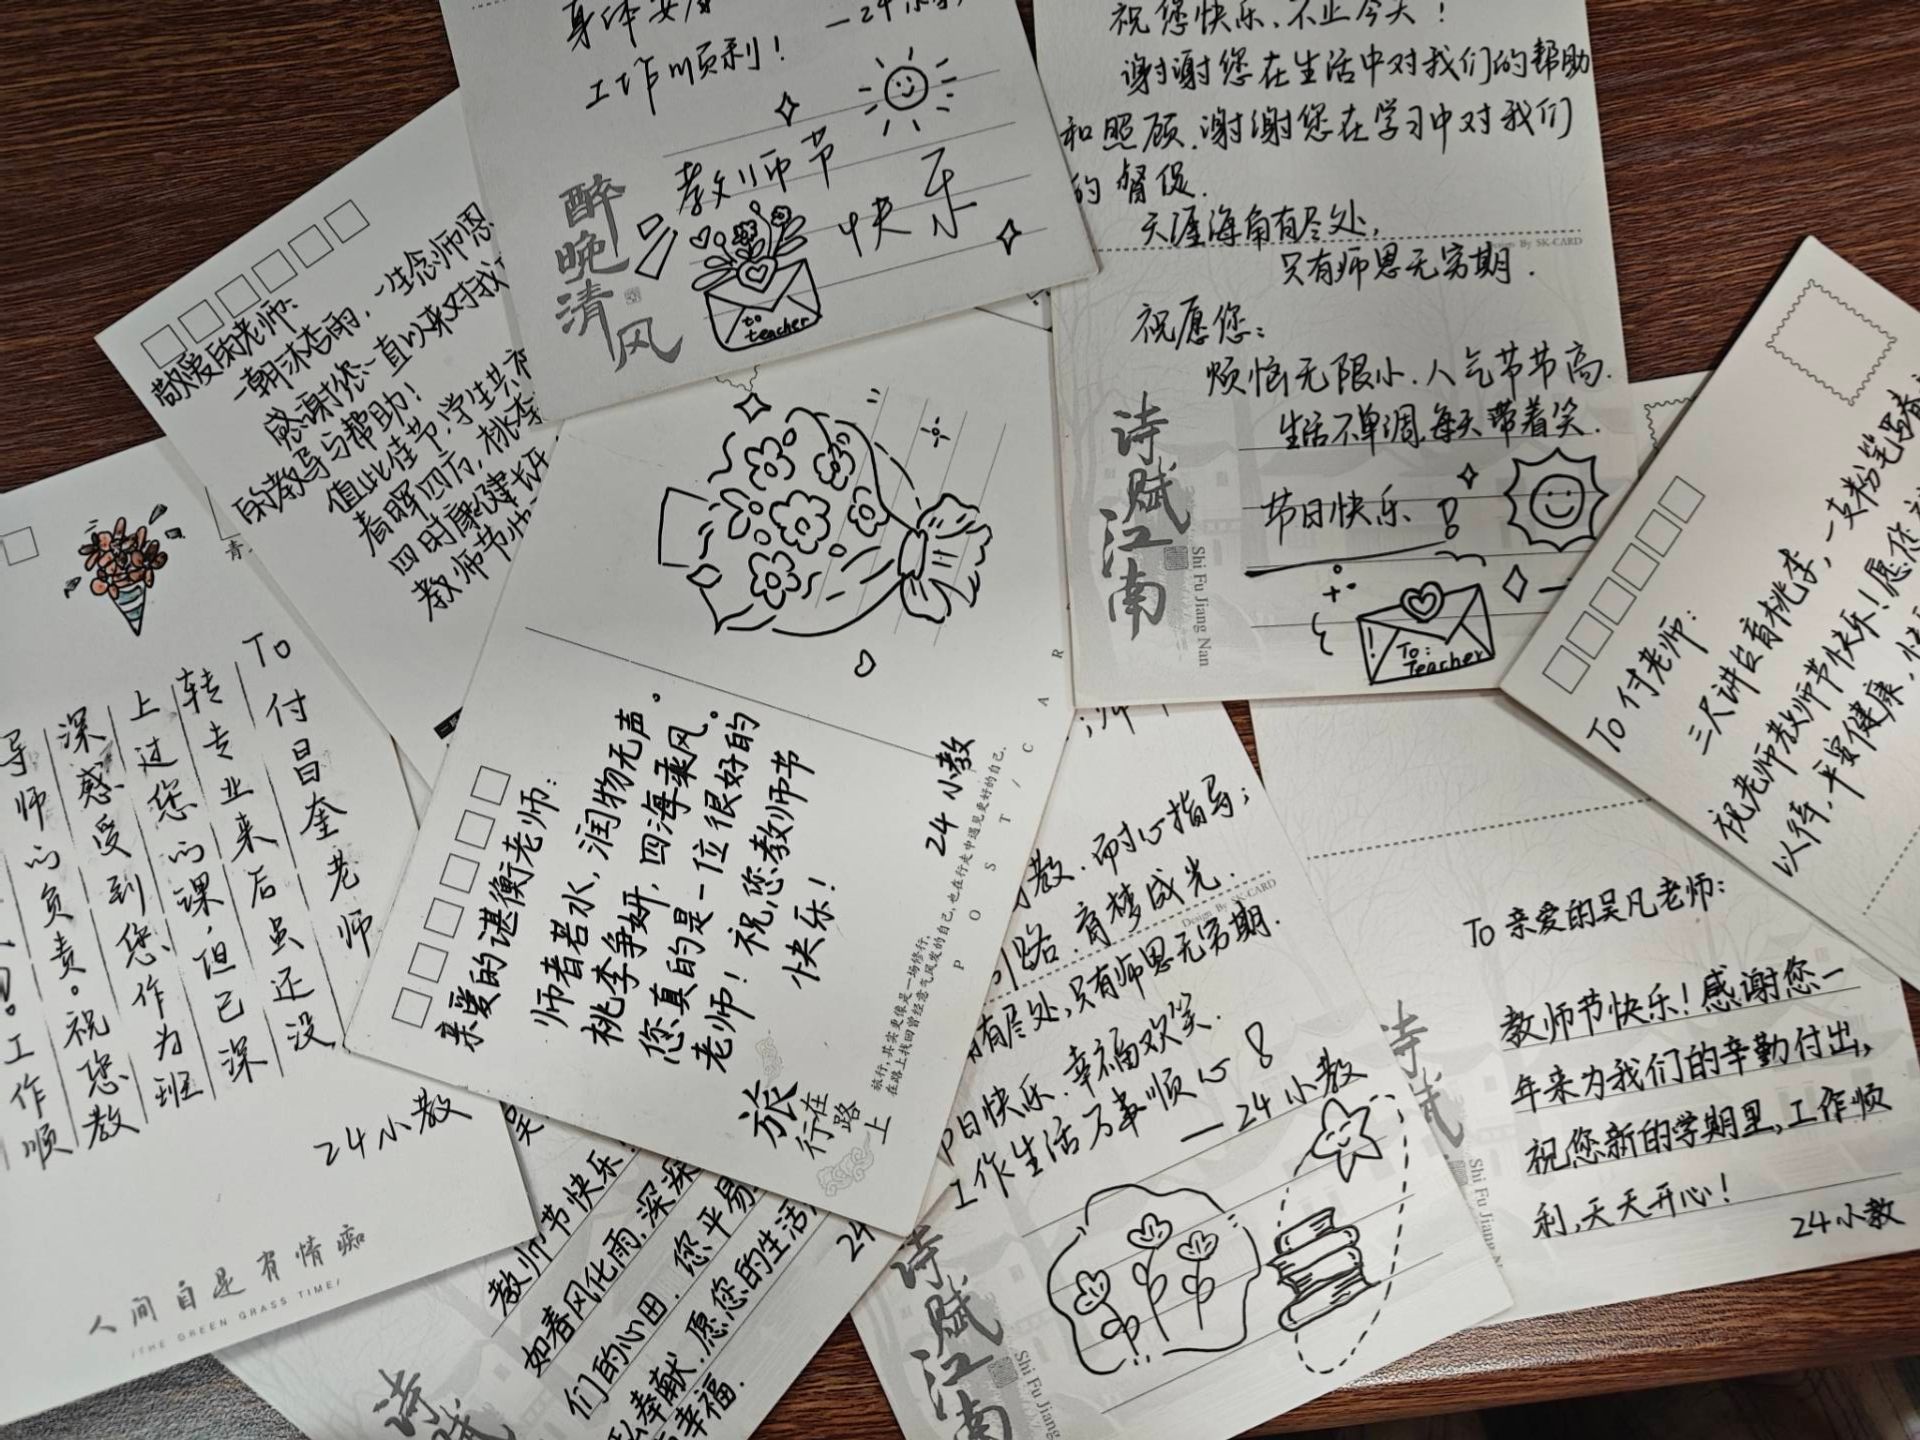 工作顺利！
教师节
快乐
醉晚清风
to
teacher
祝您快乐、不止今天！
谢谢您在生活中对我们的帮助
和照顾.谢谢您在学习中对我们
的督促.
天涯海角有尽处,
只有师恩无穷期.
Design By SK-CARD
祝愿您：
烦恼无限小.人气节节高.
生活不单调,每天带着笑.
节日快乐
诗赋江南
Shi Fu Jiang Nan
To:
Teacher
一朝沐杏雨,一生念师恩
感谢您一直以来对我
的教导与帮助！
值此佳节,学生共祝
春晖四方,桃李
四时康健
教师节快
To 付老师：
三尺讲台育桃李,一支粉笔
祝老师教师节快乐！愿您
以待,平安健康,
To 付昌奎老师
转专业来后虽还没
上过您的课,但已深
深感受到您作为班
导师的负责。祝您教
工作顺
24小教
人间自是有情痴
/THE GREEN GRASS TIME/
亲爱的谌衡老师：
师者若水,润物无声。
桃李争妍,四海乘风。
您真的是一位很好的
老师！祝您教师节
快乐！
24小教
旅行在路上
旅行,其实更像是一场修行,
在路上找回曾经意气风发的自己,也在行走中遇见更好的自己.
POST/CAR
教.耐心指导；
路.育梦成光.
Design By SK-CARD
有尽处,只有师恩无穷期.
日快乐.幸福欢笑.
工作生活万事顺心！
—24小教
诗赋江南
Shi Fu Jiang
To 亲爱的吴凡老师：
教师节快乐！感谢您一
年来为我们的辛勤付出,
祝您新的学期里,工作顺
利,天天开心！
24小教
诗赋
Shi Fu Jiang N
教师节快乐
如春风化雨,深深
们的心田.您平易
私奉献.愿您的生活
幸福.
24
诗赋